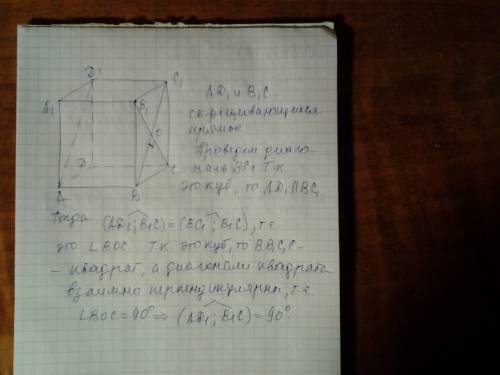 D1
C1
A1
B1
O
D
C
A
B
AD1 и B1C -
скрещивающиеся
прямые
Проведем диаго-
наль BC1 Т.к.
это куб, то AD1 || BC1
Тогда (AD1; B1C) = (BC1; B1C), т.е
это ∠BOC Т.К. это куб, то BB1C1C -
- квадрат, а диагонали квадрата
взаимно перпендикулярны, т.е.
∠BOC = 90° ⇒ (AD1; B1C) = 90°